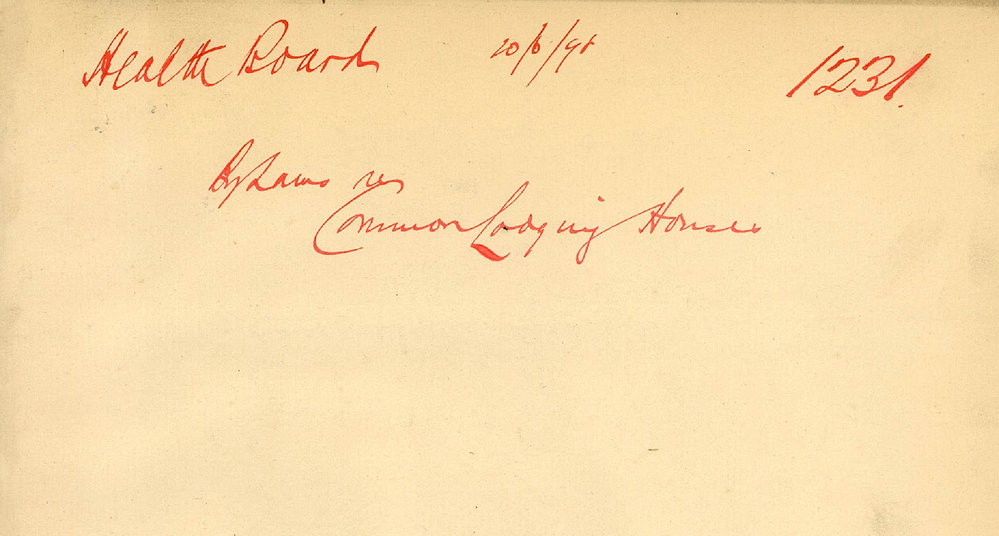 Health Board 20/6/98 1231.
By Laws re
Common Lodging Houses